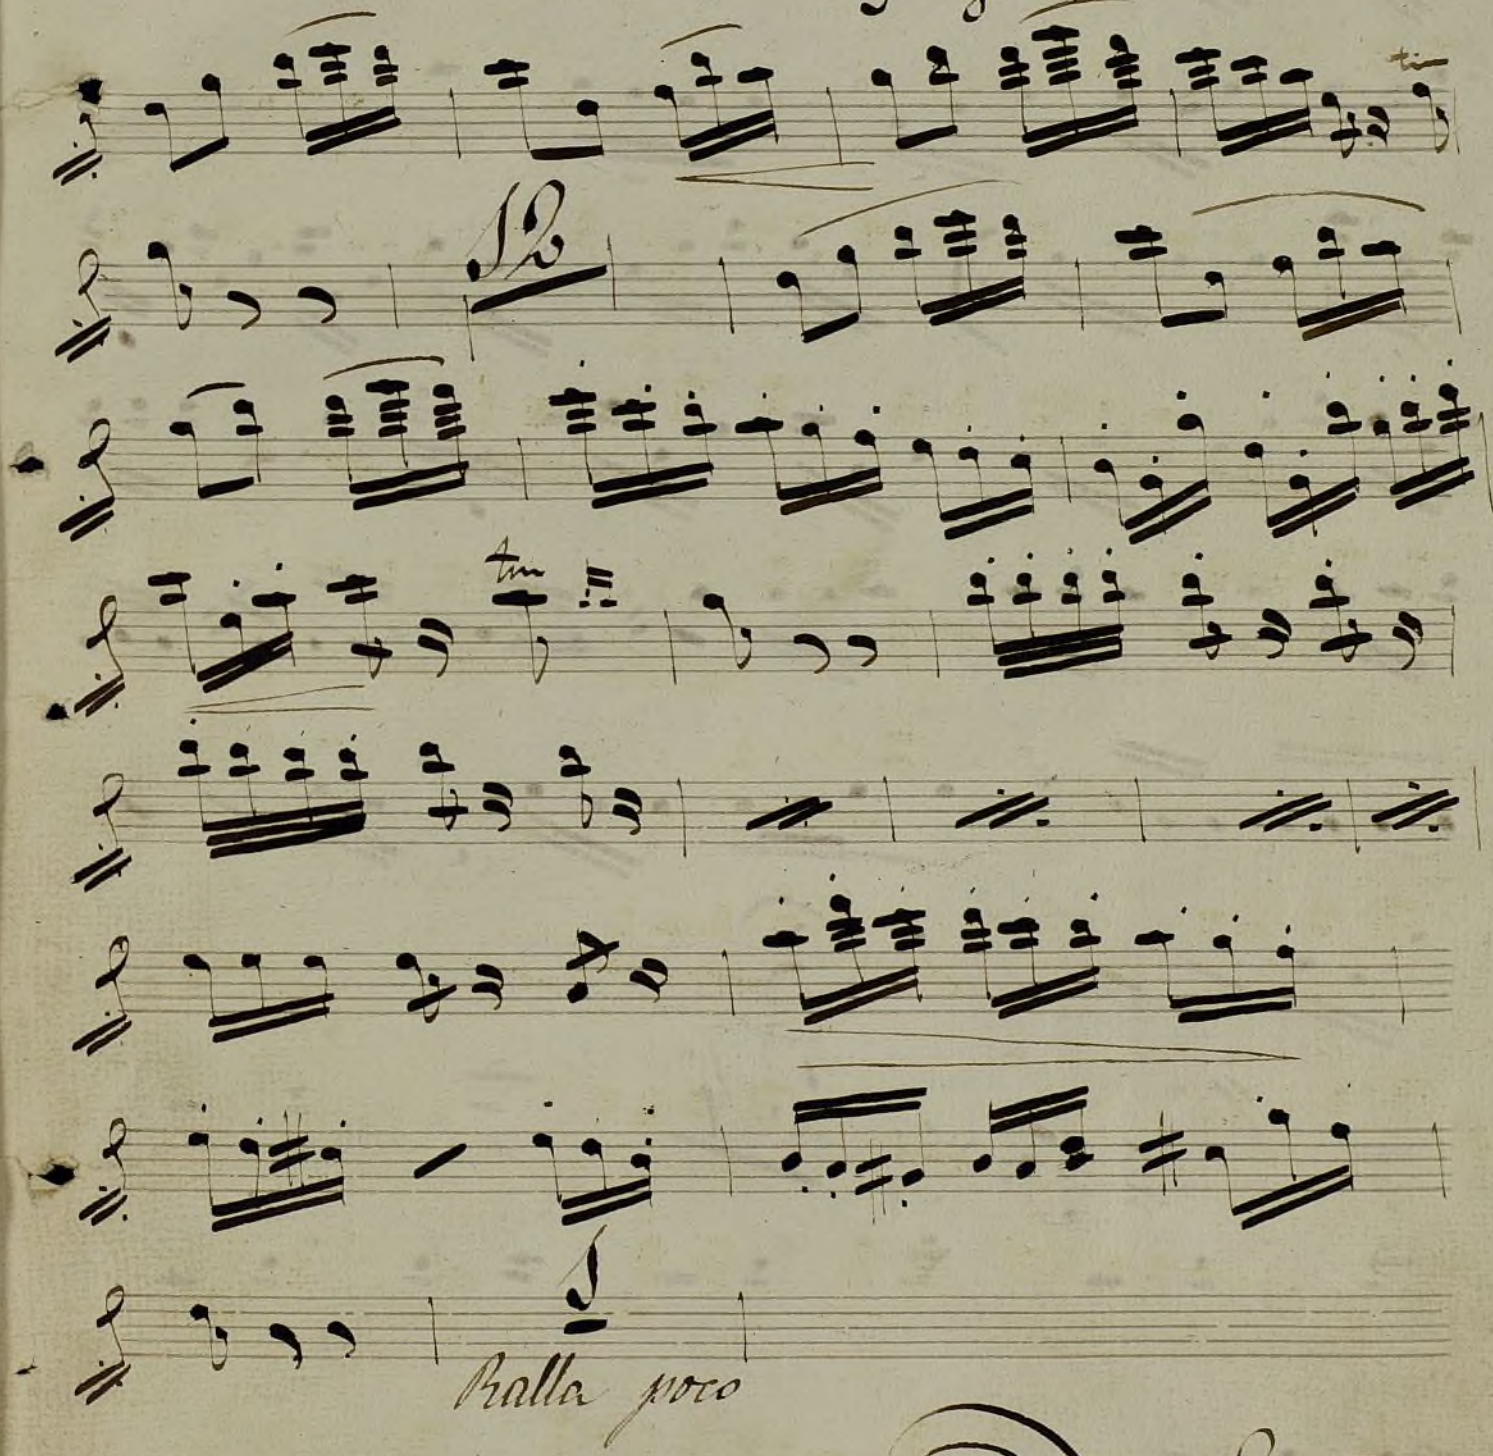 tr
12
tr
1
Ralla poco